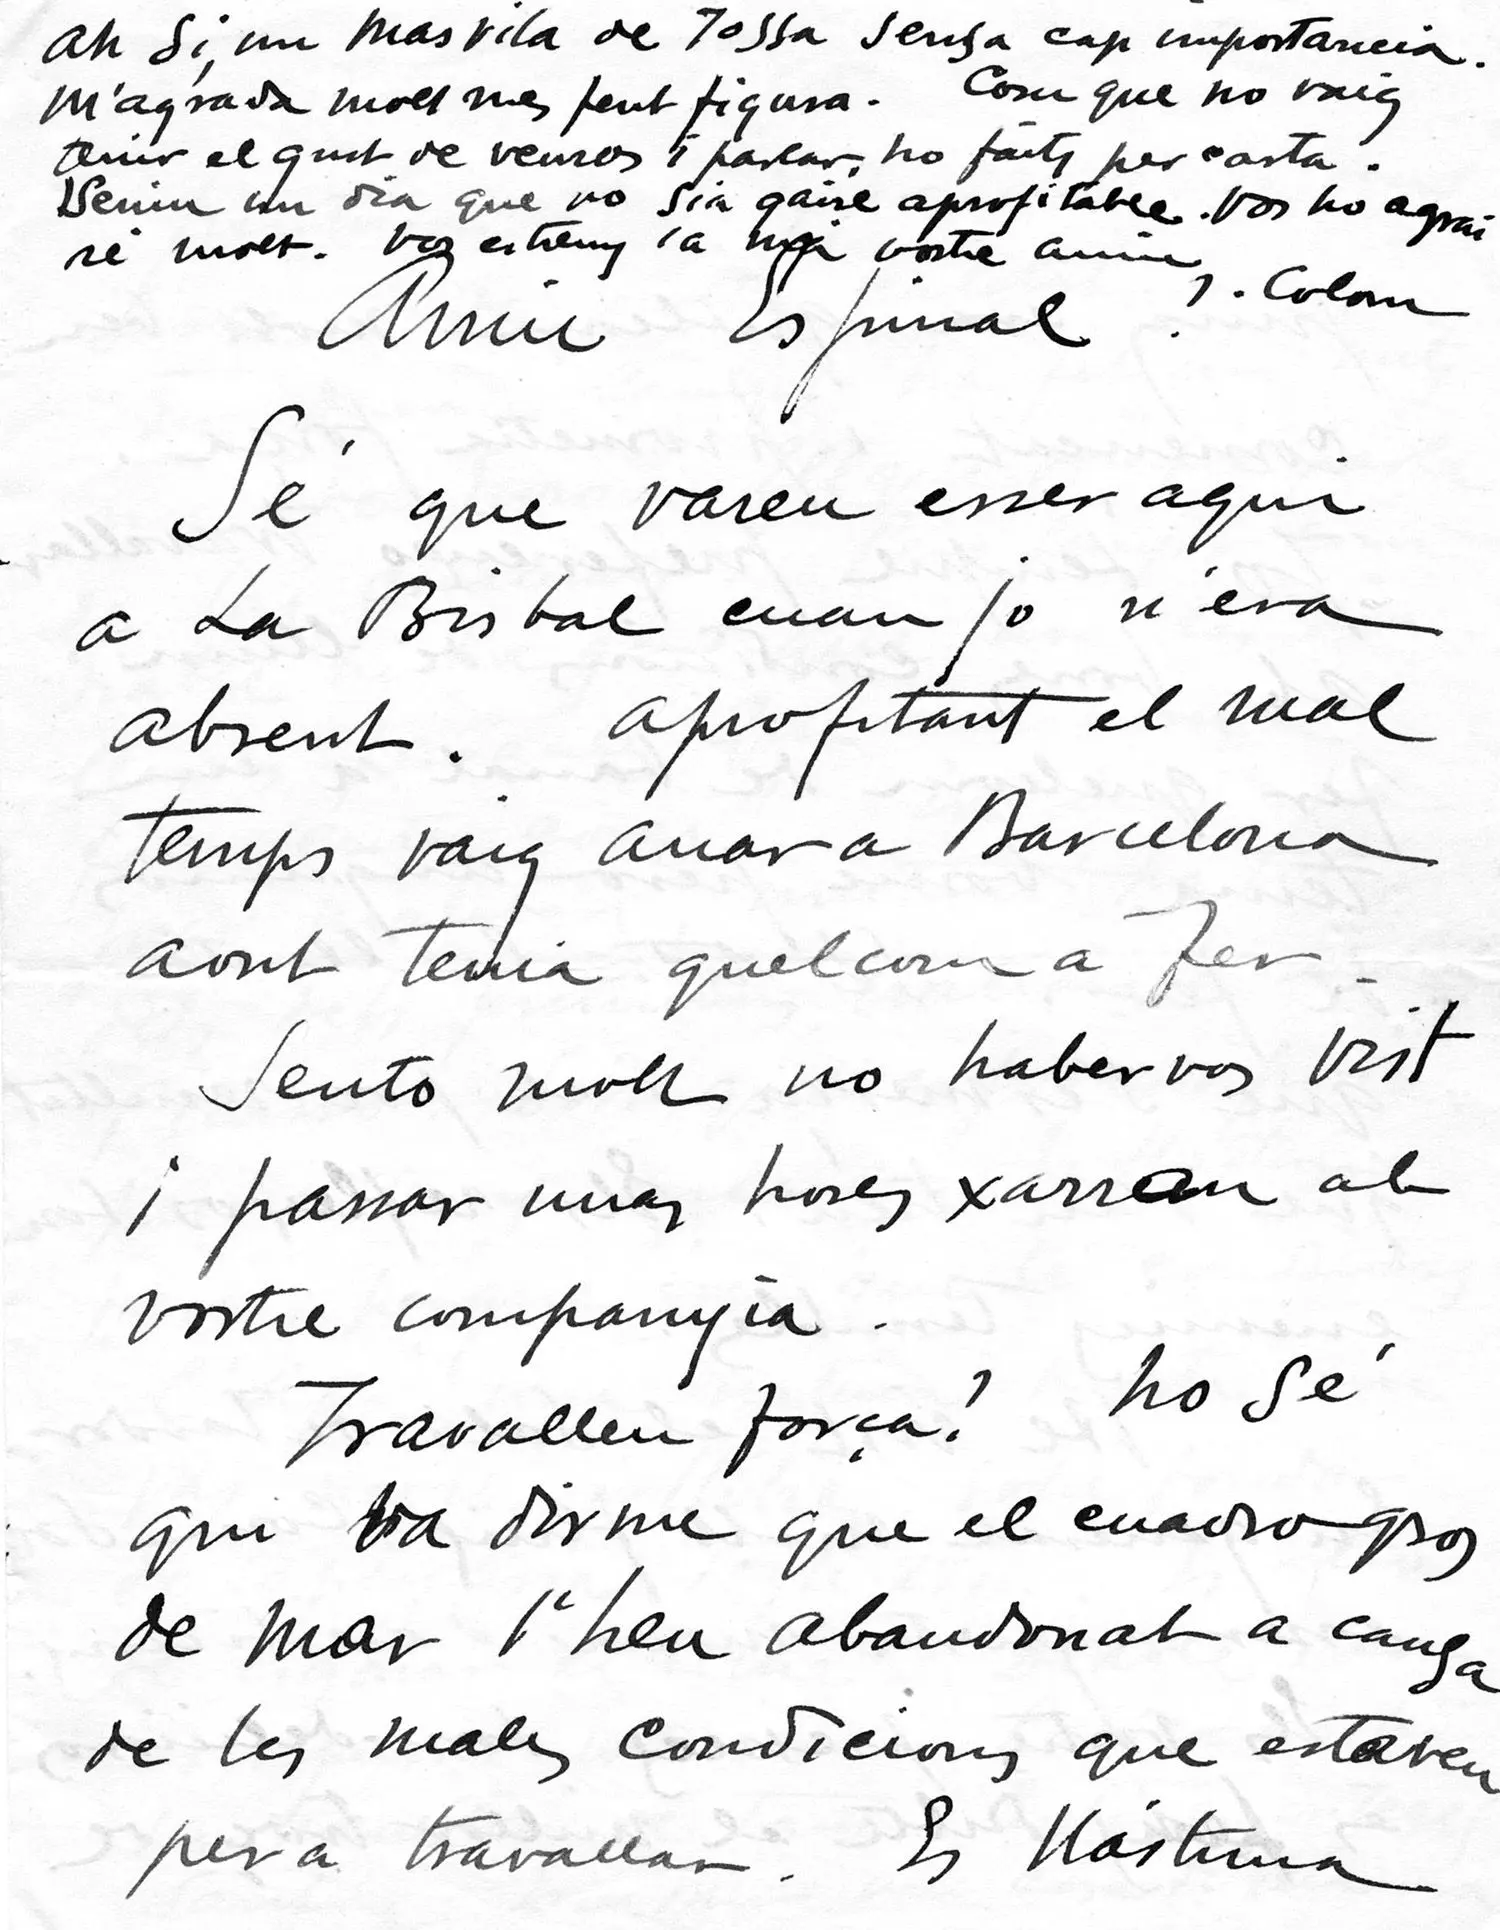 Ah Si, un Masvila de Tossa sensa cap importancia.
M'agrada molt mes fent figura. Com que no vaig
tenir el gust de veuros i parlar, ho faitg per carta.
Veniu un dia que no sia gaire aprofitable. Vos ho agrai
ré molt. Vos estreny la mà vostre amic
J. Colom
Amic Espinal
Sé que vareu esser aqui
a La Bisbal cuan jo n'era
absent. Aprofitant el mal
temps vaig anar a Barcelona
aont tenia quelcom a fer.
Sento molt no habervos vist
i passar unas hores xarran ab
vostre companyia.
Travalleu força? No Sé
qui va dirme que el cuadro gros
de mar l'heu abandonat a causa
de les males condicions que estaveu
per a travallar. Es llástima